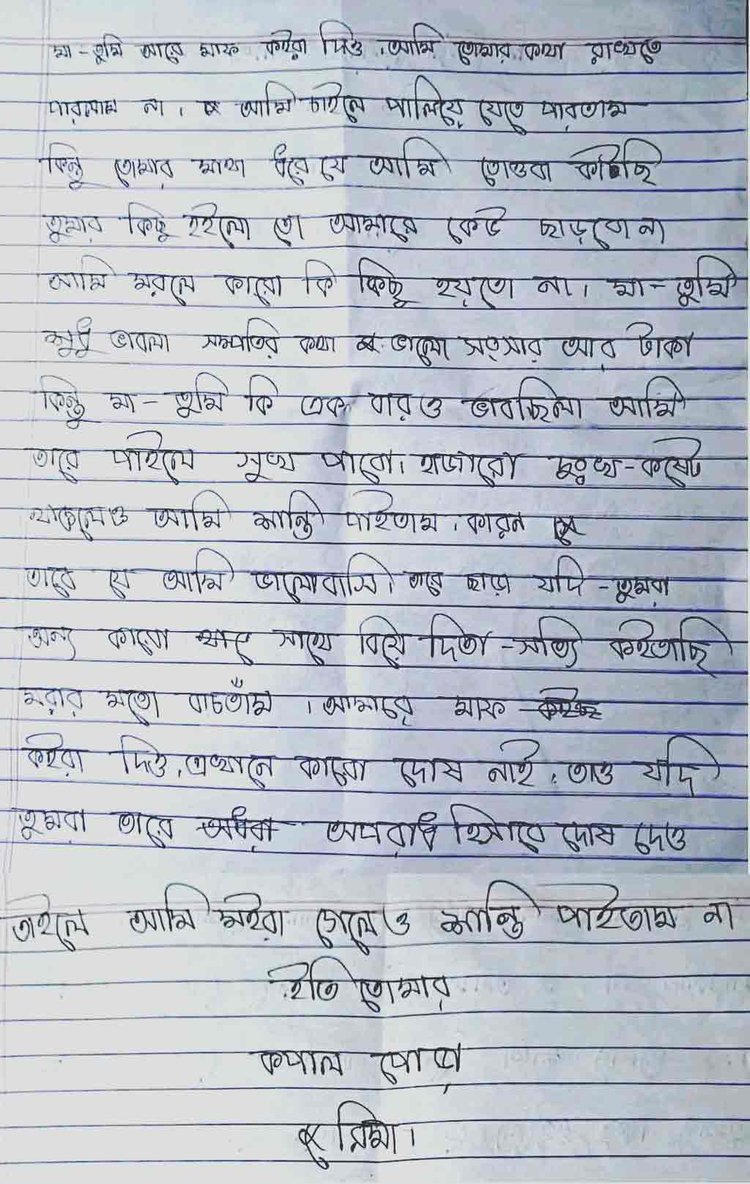 মা-তুমি আরে মাফ কইরা দিও, আমি তোমার কথা রাখতে
পারলাম না। আমি চাইলে পালিয়ে যেতে পারতাম
কিন্তু তোমার মাথা ধরে যে আমি তোওবা কাটছি
তুমার কিছু হইলো তো আমারে কেউ ছাড়বো না
আমি মরলে কারো কি কিছু হয়তো না। মা-তুমি
শুধু ভাবলা সম্পত্তির কথা ভালো সংসার আর টাকা
কিন্তু মা-তুমি কি এক বারও ভাবছিলা আমি
তারে পাইলে সুখ পাবো। হাজারো দুঃখ-কষ্টে
থাকলেও আমি শান্তি পাইতাম, কারন
তারে যে আমি ভালোবাসি। তারে ছাড়া যদি-তুমরা
অন্য কারো সাথে বিয়ে দিতা-সত্যি কইতাছি
মরার মতো বাচতাঁম। আমারে মাফ
কইরা দিও, এখানে কারো দোষ নাই, তাও যদি
তুমরা তারে অপরাধি হিসাবে দোষ দেও
তাইলে আমি মইরা গেলেও শান্তি পাইতাম না
ইতি তোমার
কপাল পোড়া